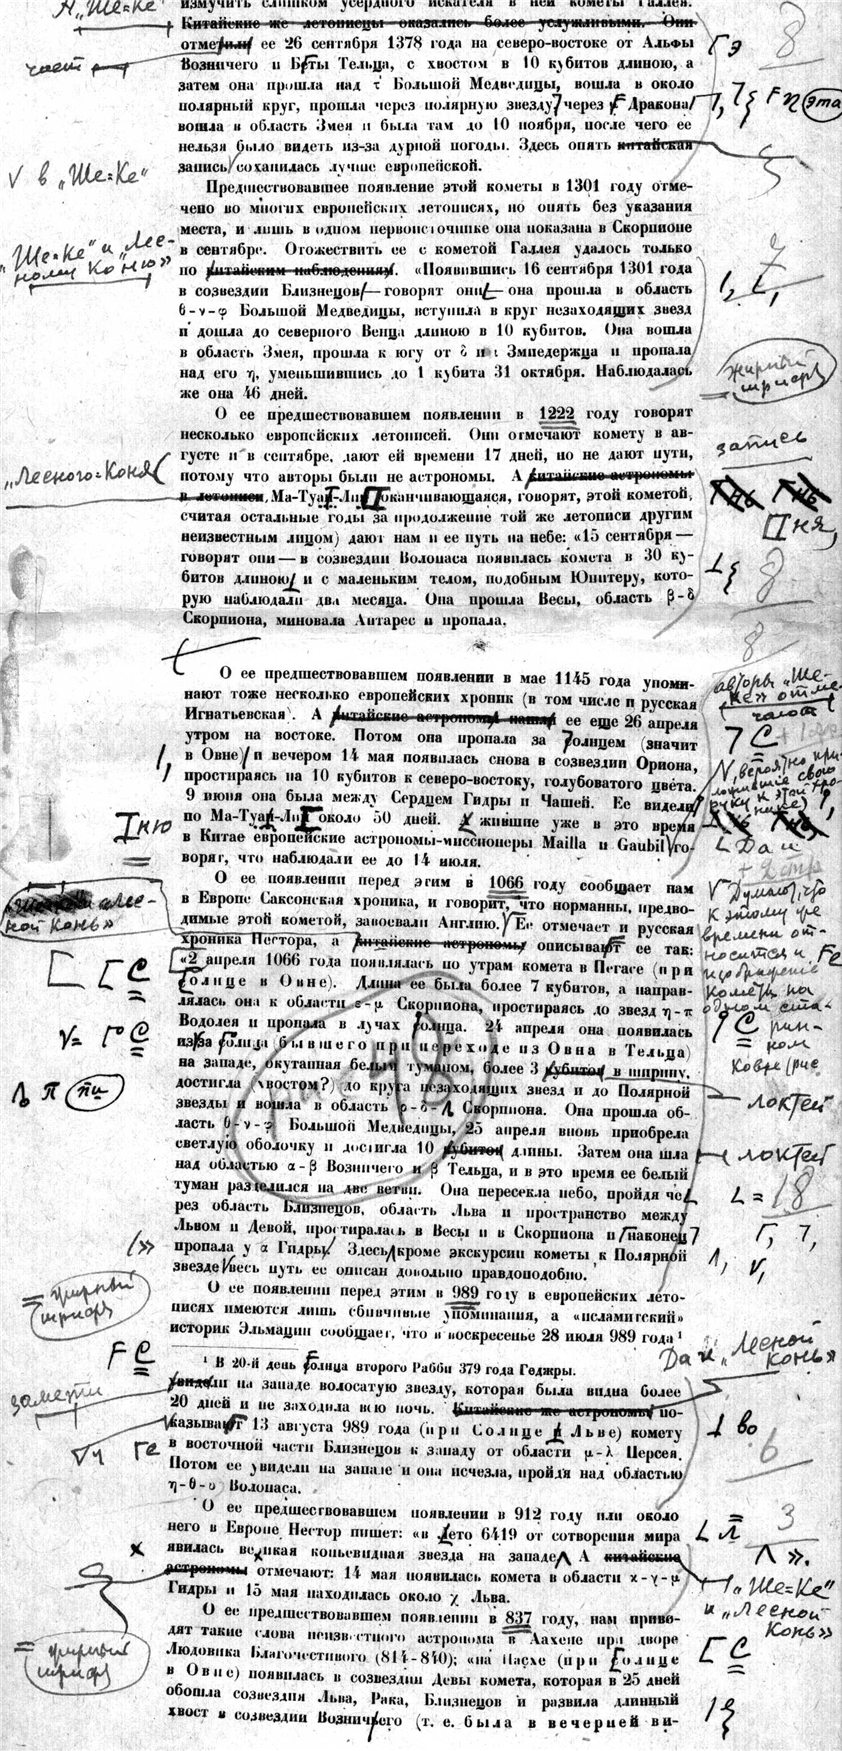 измучить слишком усердного искателя в ней кометы Галлея.
А „Ше-Ке"
Китайские же летописцы оказались более услужливыми. Они
отметили ее 26 сентября 1378 года на северо-востоке от Альфы
Возничего и Беты Тельца, с хвостом в 10 кубитов длиною, а
затем она прошла над τ Большой Медведицы, вошла в около
полярный круг, прошла через полярную звезду, через Дракона
эта
вошла в область Змея и была там до 10 ноября, после чего ее
нельзя было видеть из-за дурной погоды. Здесь опять китайская
в „Ше=Ке"
запись сохранилась лучше европейской.
Предшествовавшее появление этой кометы в 1301 году отме-
чено во многих европейских летописях, но опять без указания
места, и лишь в одном первоисточнике она показана в Скорпионе
„Ше=Ке" и „Лес-
ному Коню»
в сентябре. Отожествить ее с кометой Галлея удалось только
по китайским наблюдениям. «Появившись 16 сентября 1301 года
в созвездии Близнецов — говорят они — она прошла в область
θ-ν-φ Большой Медведицы, вступила в круг незаходящих звезд
и дошла до северного Венца длиною в 10 кубитов. Она вошла
в область Змея, прошла к югу от δ и ε Змиедержца и пропала
жирный
шрифт
над его η, уменьшившись до 1 кубита 31 октября. Наблюдалась
же она 46 дней.
О ее предшествовавшем появлении в 1222 году говорят
несколько европейских летописей. Они отмечают комету в ав-
запись
густе и в сентябре, дают ей времени 17 дней, но не дают пути,
„Лесного=Коня (
потому что авторы были не астрономы. А китайские астрономы
в летописи Ма-Туан-Лин оканчивающаяся, говорят, этой кометой,
считая остальные годы за продолжение той же летописи другим
ня,
неизвестным лицом) дают нам и ее путь на небе: «15 сентября —
говорят они — в созвездии Волопаса появилась комета в 30 ку-
битов длиною и с маленьким телом, подобным Юпитеру, кото-
8
рую наблюдали два месяца. Она прошла Весы, область β-δ
Скорпиона, миновала Антарес и пропала.
8
О ее предшествовавшем появлении в мае 1145 года упоми-
авторы „Ше-
Ке» отме-
чают
нают тоже несколько европейских хроник (в том числе и русская
Игнатьевская). А китайские астрономы нашли ее еще 26 апреля
утром на востоке. Потом она пропала за Солнцем (значит
в Овне) и вечером 14 мая появилась снова в созвездии Ориона,
простираясь на 10 кубитов к северо-востоку, голубоватого цвета.
9 июня она была между Сердцем Гидры и Чашей. Ее видели
по Ма-Туан-Лин около 50 дней. А жившие уже в это время
ню
Да и
в Китае европейские астрономы-миссионеры Mailla и Gaubil го-
ворят, что наблюдали ее до 14 июля.
О ее появлении перед этим в 1066 году сообщает нам
в Европе Саксонская хроника, и говорит, что норманны, предво-
димые этой кометой, завоевали Англию. Ее отмечает и русская
Думают, что
к этому же
времени от-
носится и
изображение
кометы на
одном ста-
рин-
ном
ковре (рис
«Лес-
ной Конь»
хроника Нестора, а китайские астрономы описывают ее так:
«2 апреля 1066 года появлялась по утрам комета в Пегасе (при
Солнце в Овне). Длина ее была более 7 кубитов, а направ-
лялась она к области ε-μ Скорпиона, простираясь до звезд η-π
Водолея и пропала в лучах Солнца. 24 апреля она появилась
из-за Солнца (бывшего при переходе из Овна в Тельца)
на западе, окутанная белым туманом, более 3 кубитов в ширину,
достигла (хвостом?) до круга незаходящих звезд и до Полярной
локтей
звезды и вошла в область Скорпиона. Она прошла об-
рис 48
ласть θ-ν-φ Большой Медведицы, 25 апреля вновь приобрела
светлую оболочку и достигла 10 кубитов длины. Затем она шла
локтей
над областью α-β Возничего и β Тельца, и в это время ее белый
туман разделился на две ветви. Она пересекла небо, пройдя че-
18
рез область Близнецов, область Льва и пространство между
Львом и Девой, простиралась в Весы и в Скорпиона и наконец
пропала у α Гидры. Здесь кроме экскурсии кометы к Полярной
звезде весь путь ее описан довольно правдоподобно.
жирный
шрифт
О ее появлении перед этим в 989 году в европейских лето-
писях имеются лишь сбивчивые упоминания, а «исламитский»
историк Эльмацин сообщает, что в воскресенье 28 июля 989 года ¹
Да и „Лесной
Конь»
¹ В 20-й день Солнца второго Рабби 379 года Геджры.
замети
видели на западе волосатую звезду, которая была видна более
20 дней и не заходила всю ночь. Китайские же астрономы по-
казывают 13 августа 989 года (при Солнце в Льве) комету
во
в восточной части Близнецов к западу от области μ-λ Персея.
6
Потом ее увидели на западе и она исчезла, пройдя над областью
η-θ-υ Волопаса.
О ее предшествовавшем появлении в 912 году или около
3
него в Европе Нестор пишет: «в Лето 6419 от сотворения мира
явилась великая копьевидная звезда на западе А китайские
астрономы отмечают: 14 мая появилась комета в области κ-γ-μ
„Ше=Ке"
и „Лесной
Конь»
Гидры и 15 мая находилась около χ Льва.
О ее предшествовавшем появлении в 837 году, нам приво-
дят такие слова неизвестного астронома в Аахене при дворе
жирный
шрифт
Людовика Благочестивого (814-840); «на Пасхе (при Солнце
в Овне) появилась в созвездии Девы комета, которая в 25 дней
обошла созвездия Льва, Рака, Близнецов и развила длинный
хвост в созвездии Возничьего (т. е. была в вечерней ви-